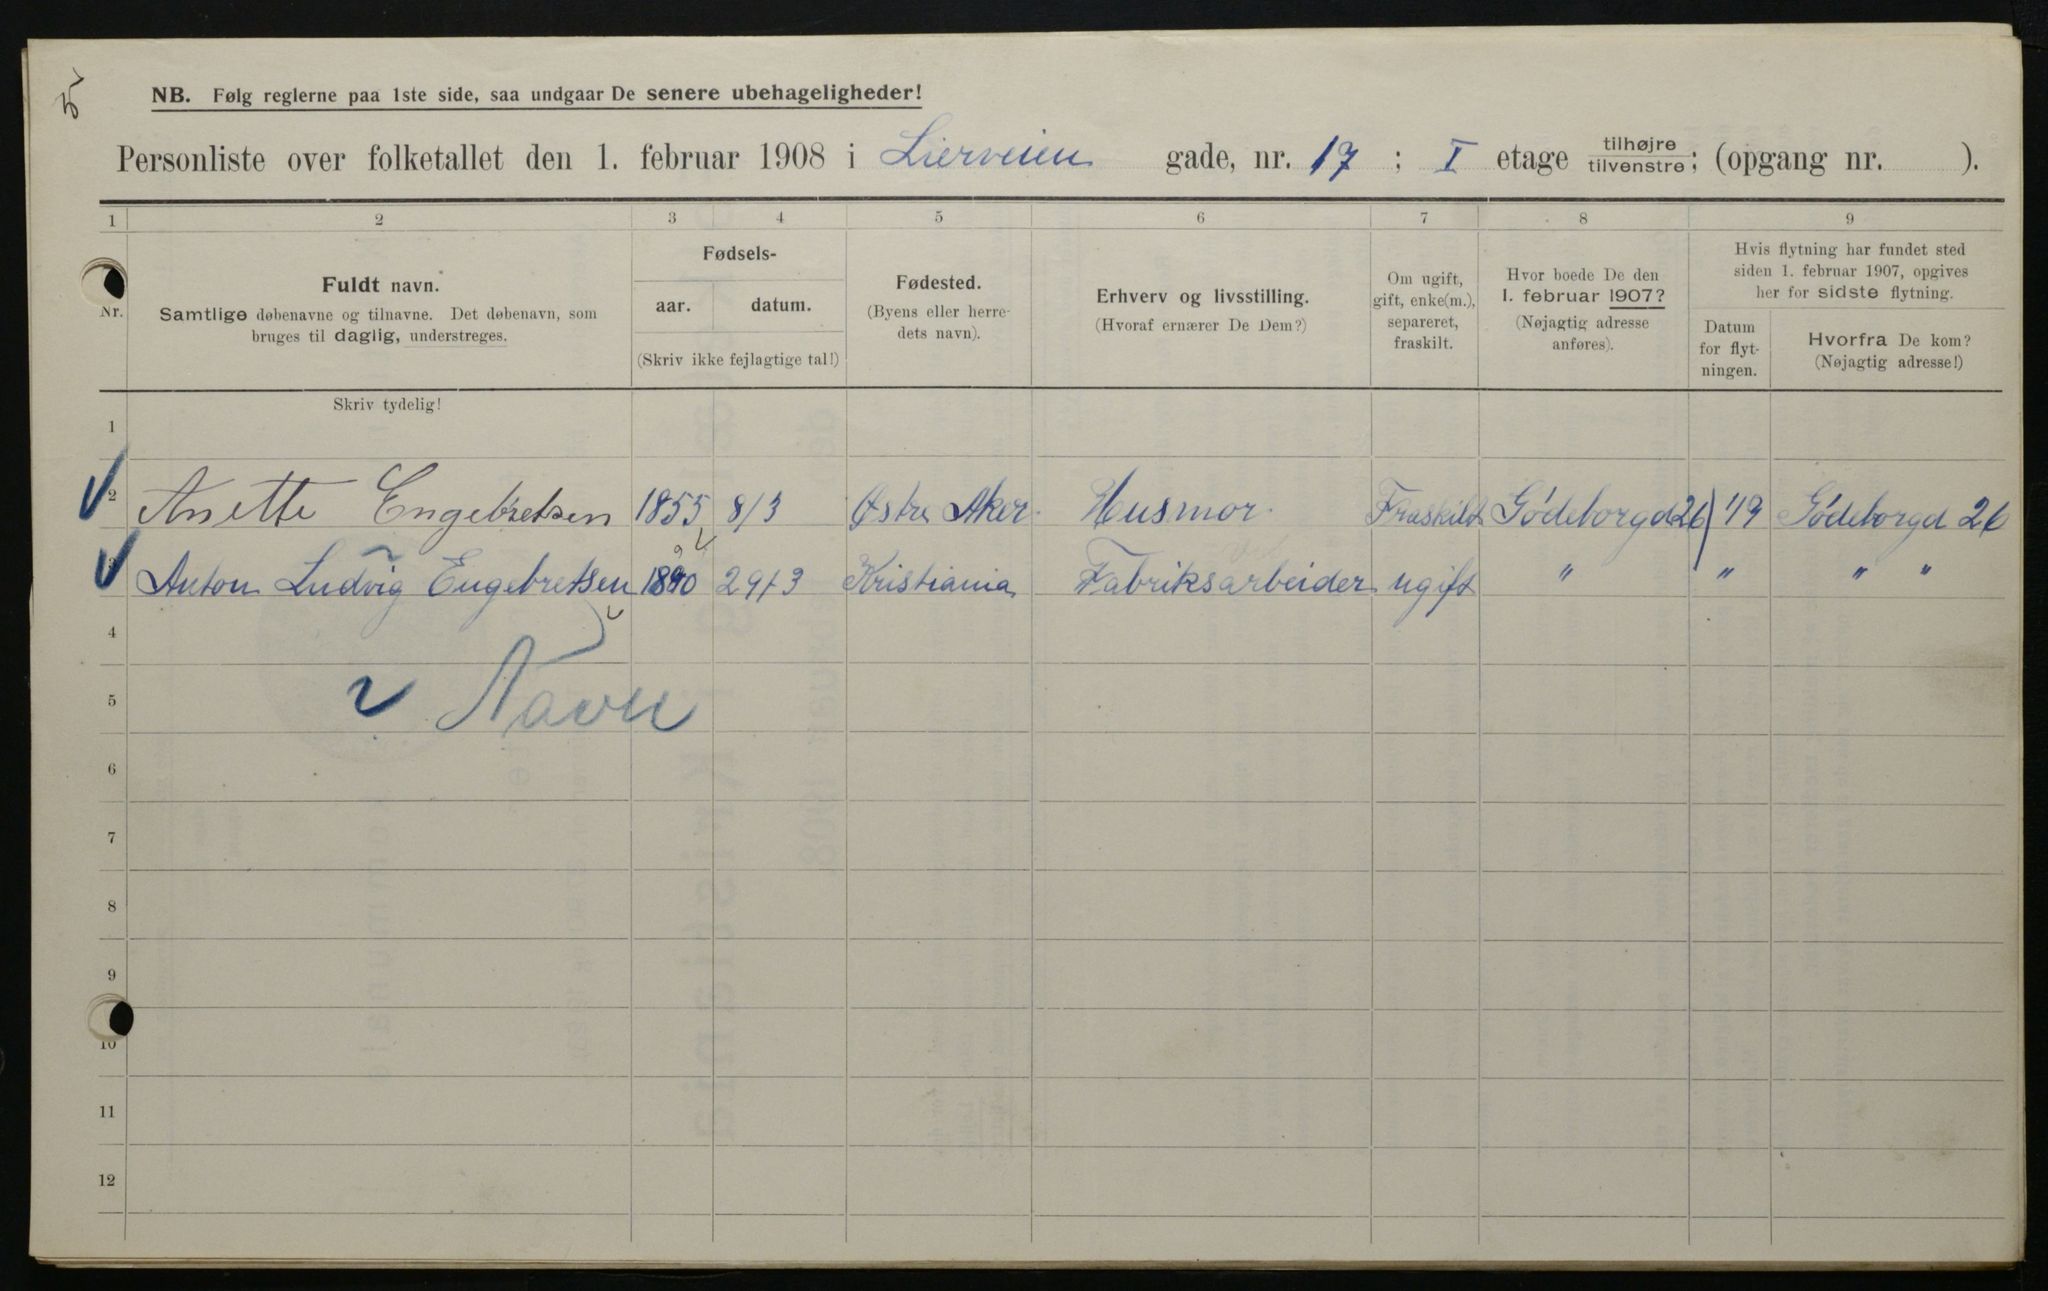 NB. Følg reglerne paa 1ste side, saa undgaar De senere ubehageligheder!
Personliste over folketallet den 1. februar 1908 i Lierveien gade, nr. 17 ; I etage tilhøjre tilvenstre; (opgang nr. ).
1 2 3 4 5 6 7 8 9
Nr.
Fuldt navn.
Samtlige døbenavne og tilnavne. Det døbenavn, som
bruges til daglig, understreges.
Fødsels-
aar. datum.
(Skriv ikke fejlagtige tal!)
Fødested.
(Byens eller herre-
dets navn).
Erhverv og livsstilling.
(Hvoraf ernærer De Dem?)
Om ugift,
gift, enke(m.),
separeret,
fraskilt.
Hvor boede De den
1. februar 1907?
(Nøjagtig adresse
anføres).
Hvis flytning har fundet sted
siden 1. februar 1907, opgives
her for sidste flytning.
Datum
for flyt-
ningen.
Hvorfra De kom?
(Nøjagtig adresse!)
Skriv tydelig!
1
2 Anette Engebretsen 1855 8/3 Østre Aker. Husmor. Fraskilt Gódeborgd 26 1/9 Gódeborgd 26
3 Anton Ludvig Engebretsen 1890 29/3 Kristiania Fabriksarbeider ugift " " " "
4
Navn
5
6
7
8
9
10
11
12